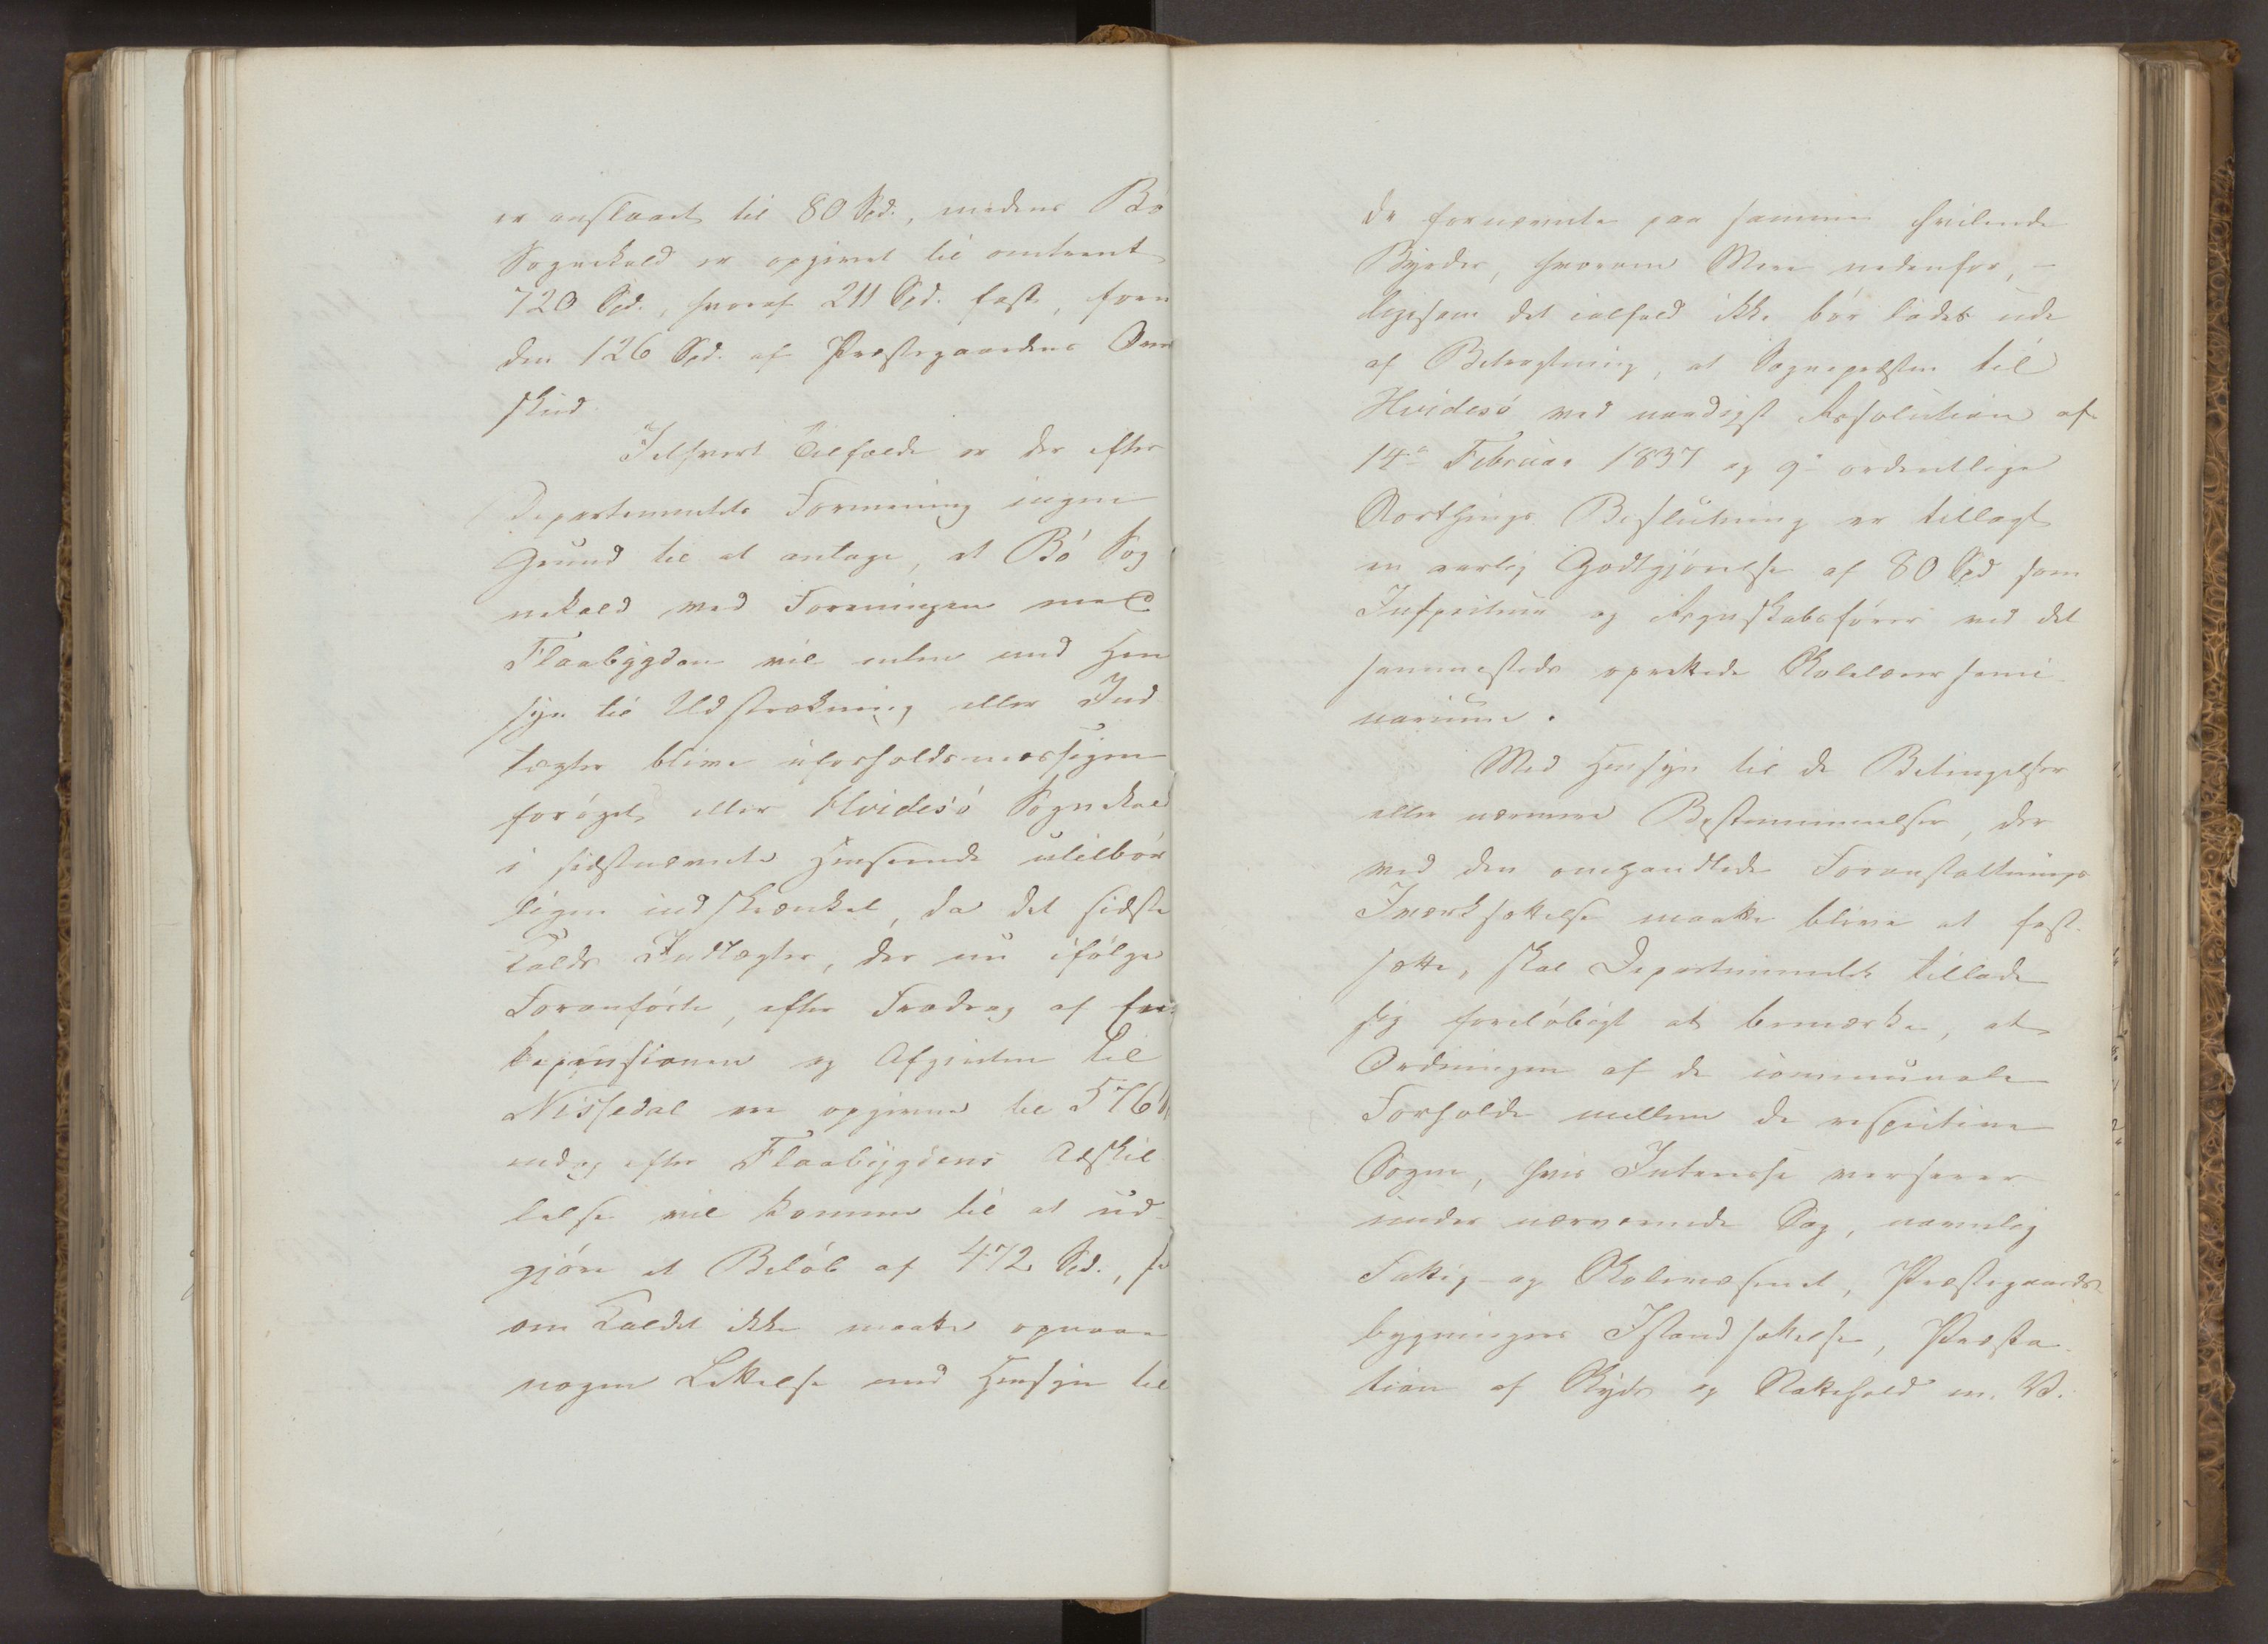 er anslaaet til 80 Spd., medens Bø
Sognekald er opgivet til omtrent
720 Spd., hvoraf 211 Spd. fast, foru
den 126 Spd. af Præstegaardens Over
skud
Ialfvert Tilfælde er der efter
Departementets Formening ingen
Grund til at antage, at Bø Sog
nekald ved Foreningen med
Flaabygden vil enten med Hen
syn til Udstrækning eller Ind
tægter blive uforholdsmæssigen
forøget eller Hvidesø Sognekald
i sidstnævnte Henseende utilbør
ligen indskrænket, da det sidste
Kalds Indtægter, der nu ifølge
Foranførte, efter Fradrag af En-
kepensionen og Afgiften til
Nissedal er opgivne til 576
endog efter Flaabygdens Adskil
lelse vil komme til at ud-
gjøre et Beløb af 472 Spd.,
om Kaldet ikke maatte opnaae
nogen Lettelse med Hensyn til
de fornævnte paa samme hvilende
Byrder, hvorom Mere nedenfor, -
ligesom det ialfald ikke bør lades ude
af Betragtning, at Sognepræsten til
Hvidesø ved naadigst Resolution af
14de Februar 1837 og 9de ordentlige
Storthings Beslutning er tillagt
en aarlig Godtgjørelse af 80 Spd som
Inspecteur og Regnskabsfører ved det
sammesteds oprettede Skolelærersemi-
narium.
Med Hensyn til de Betingelser
eller nærmere Bestemmelser, der
ved den omhandlede Foranstaltnings
Iværksættelse maatte blive at fast-
sætte, skal Departementet tillade
sig foreløbigt at bemærke, at
Ordningen af de communale
Forholde mellem de respective
Sogne, hvis Interesse verserer
under nærværende Sag, navnlig
Fattig- og Skolevæsenet, Præstegaards-
bygningers Istandsættelse, Præsta-
tion af Skyds og Nattehold m. V.